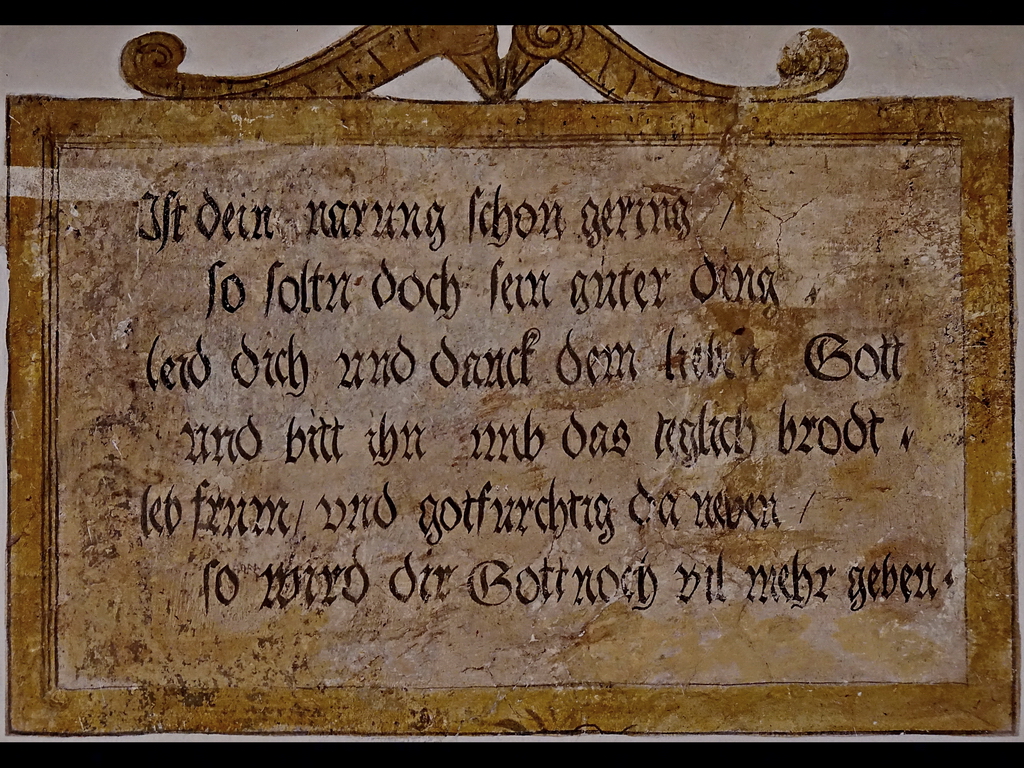 Ist dein narung schon gering /
so soltu doch sein guter ding
leid dich und danck dem lieben Gott
und bitt ihn umb das teglich brodt
leb frum / vnd gotfurchtig da neben /
so wird dir Gott noch vil mehr geben.